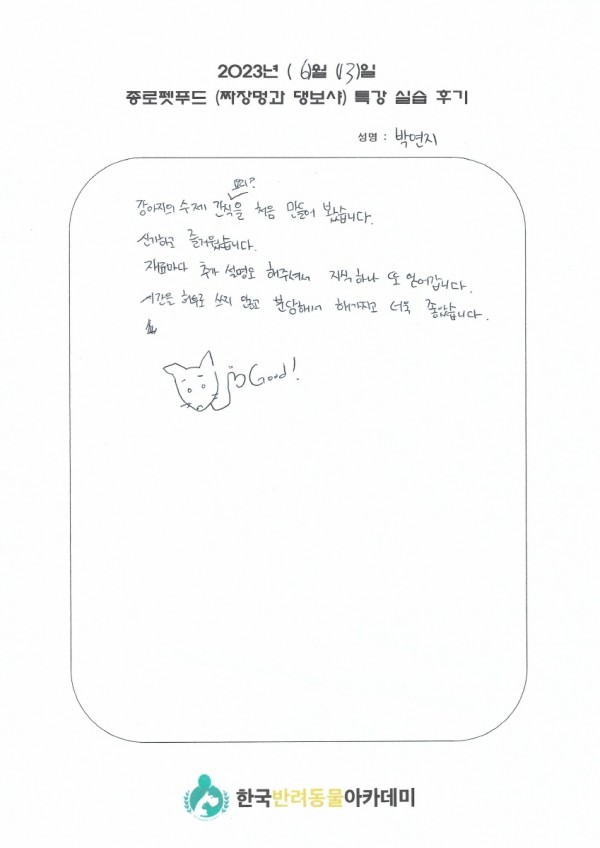 2023년 (6)월 (13)일
종로펫푸드 (짜장멍과 댕보샤) 특강 실습 후기
성명 : 박연지
요리?
강아지의 수제 간식을 처음 만들어 보았습니다.
신기하고 즐거웠습니다.
재료마다 추가 설명도 해주셔서 지식 하나 또 얻어갑니다.
시간을 허투로 쓰지 않고 분담해서 해가지고 너무 좋았습니다.
Good!
한국반려동물아카데미